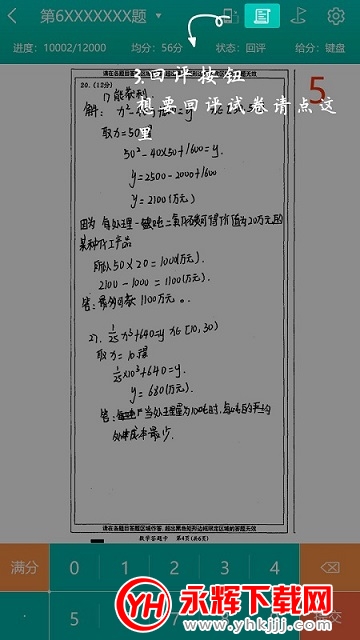 第6XXXXXXX题
进度：10002/12000 均分：56分 状态：回评 给分：键盘
请在各题目答题区域内作答，超出黑色矩形边框限定区域的答案无效
3.回评按钮
想要回评试卷请点这
里
5
20.(12分)
1) 能获利.
解：
取 x=50
50²-40×50+1600=y.
y=2500-2000+1600
y=2100(万元)
因为 每处理一吨
某种化工产品
所以50×20=1000(万元)
2100-1000=1100(万元).
答：最 1100万元。
2). 1/25x³+640=y x∈[10,30)
取 x=10 得
1/25×10³+640=y.
y=680(万元).
答：当处理量为10吨时,每吨的平均
处理成本最少.
请在各题目答题区域内作答，超出黑色矩形边框限定区域的答案无效
数学答题卡 第4页(共6页)
满分 0 1 2 3 4
5 7 提交
YH 永辉下载网
www.yhkjjj.com